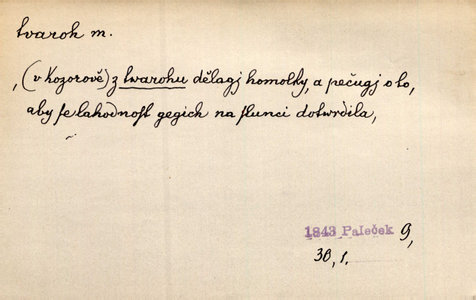 tvarok m.
„(v Kozorově) z twarohu dělagj homolky, a pečugj o to,
aby se lahodnost gegich na slunci dotwrdila,
1843 Paleček 9,
30, 1.